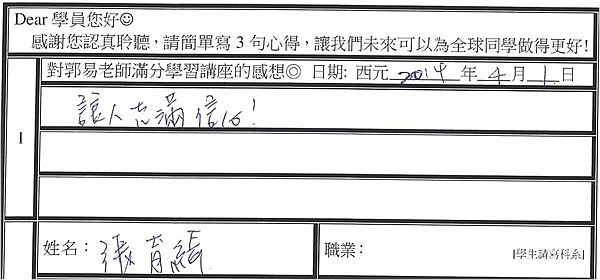 Dear 學員您好☺
感謝您認真聆聽，請簡單寫 3 句心得，讓我們未來可以為全球同學做得更好!
對郭易老師滿分學習講座的感想◎ 日期: 西元 2014 年 4 月 1 日
讓人充滿信心!
1
姓名： 張育綺 職業： [學生請寫科系]